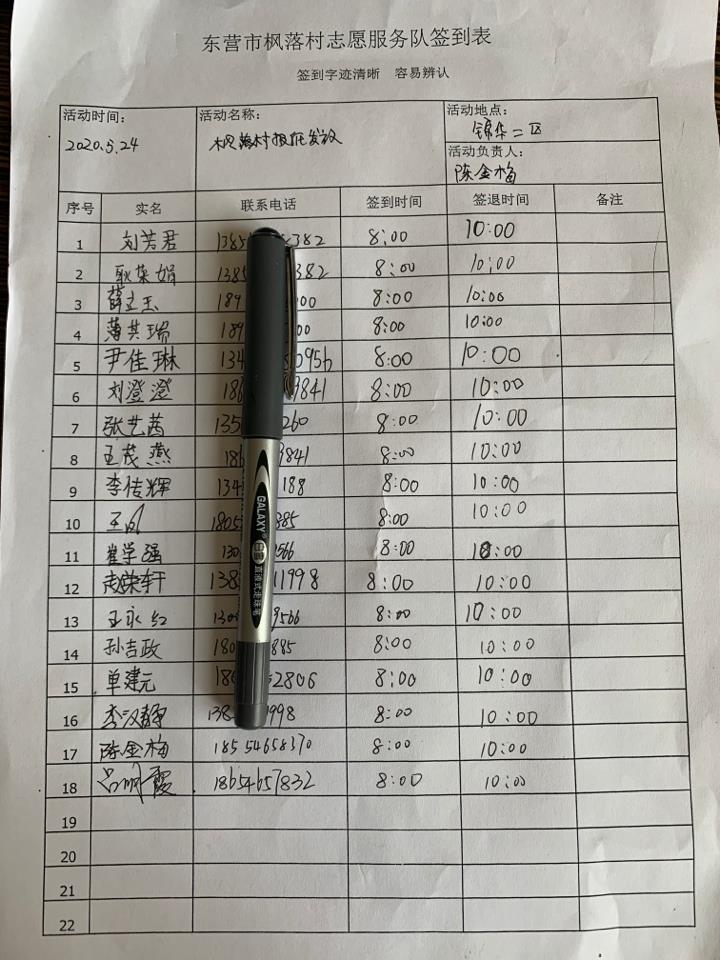 东营市枫落村志愿服务队签到表
签到字迹清晰 容易辨认
活动时间: 活动名称: 活动地点:
2020.5.24 枫落村报征发放 锦华二区
活动负责人:
陈金梅
序号 实名 联系电话 签到时间 签退时间 备注
1 刘芳君 1385 382 8:00 10:00
2 耿荣娟 1385 382 8:00 10:00
3 薛立玉 189 00 8:00 10:00
4 薄其瑞 189 00 8:00 10:00
5 尹佳琳 134 0956 8:00 10:00
6 刘澄澄 186 9841 8:00 10:00
7 张艺茜 135 260 8:00 10:00
8 王茂燕 186 9841 8:00 10:00
9 李传辉 134 188 8:00 10:00
10 王 1805 885 8:00 10:00
11 崔学强 130 566 8:00 10:00
12 赵荣轩 138 11998 8:00 10:00
13 王永红 130 9566 8:00 10:00
14 孙吉政 180 885 8:00 10:00
15 单建元 186 2806 8:00 10:00
16 李汉静 138 998 8:00 10:00
17 陈金梅 18554658370 8:00 10:00
18 吕明霞 18654657832 8:00 10:00
19
20
21
22
GALAXY 直液式走珠笔